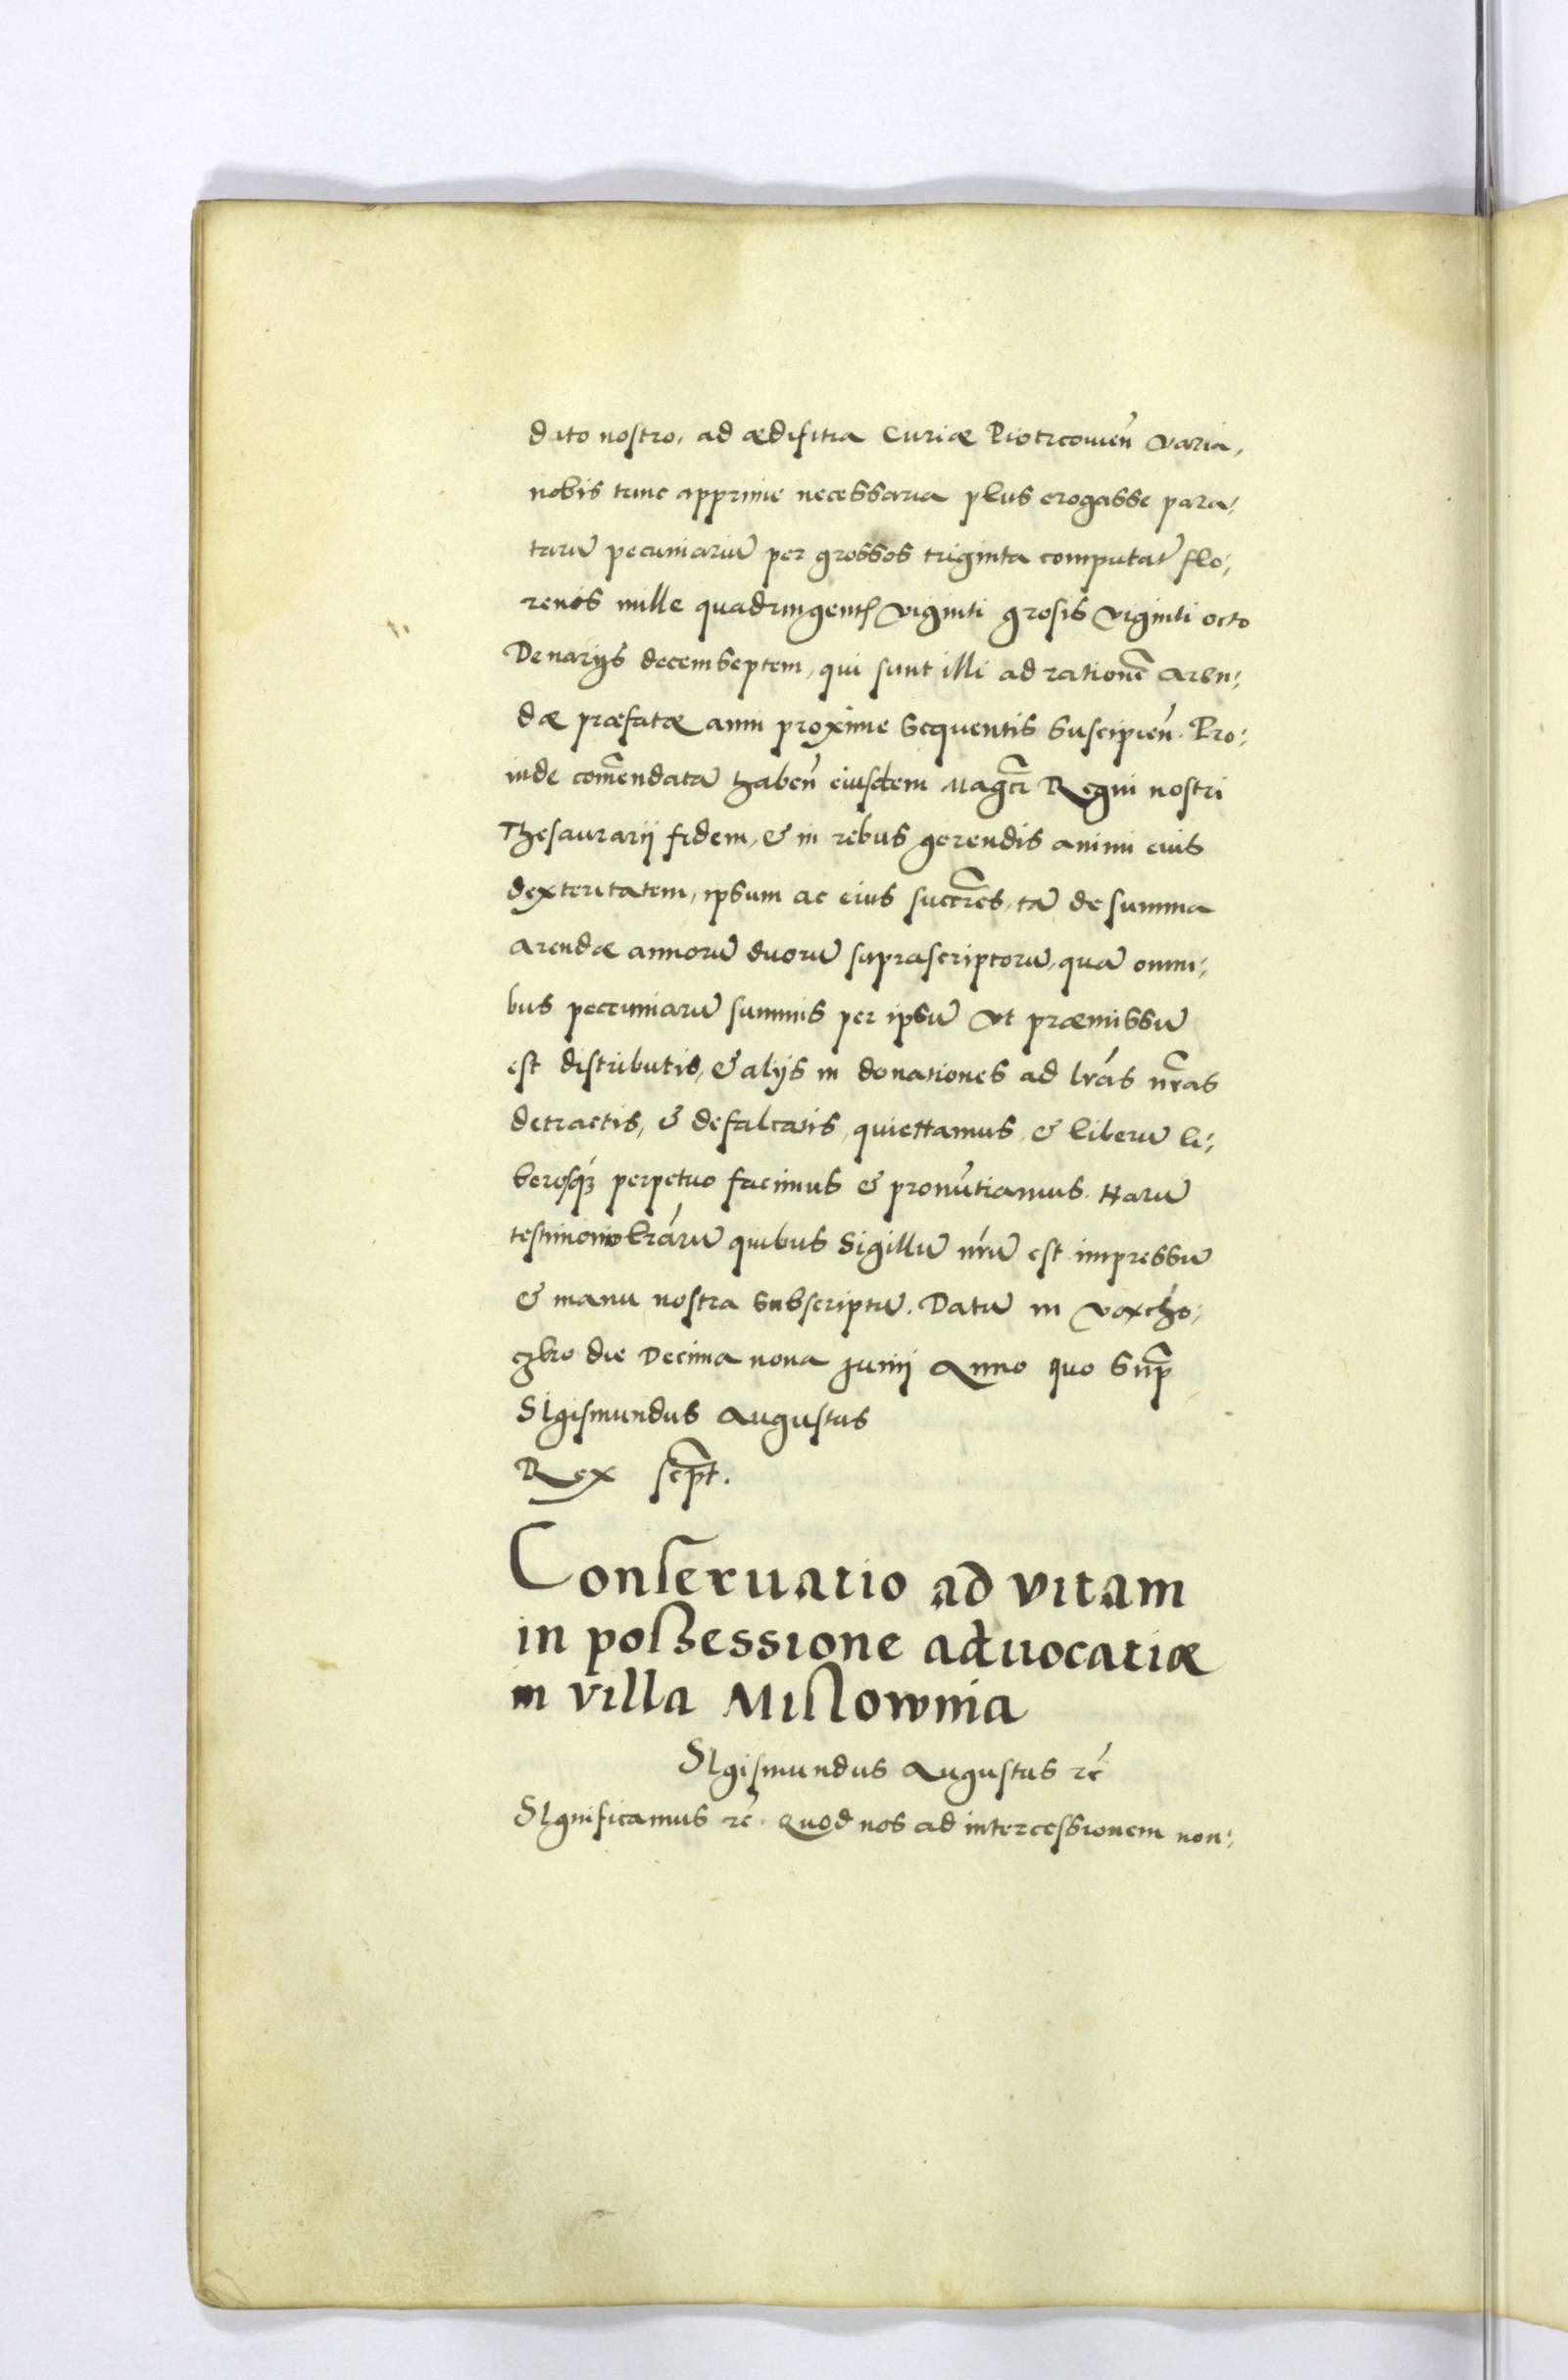 dato nostro, ad ædifitia Curiæ Piotrcouieñ varia,
nobis tunc apprime necessaria plus erogasse para:
tarũ pecuniarũ per grossos triginta computat̃ flo:
renos mille quadringent̃ viginti grosis viginti octo
Denarijs decemseptem, qui sunt illi ad rationẽ aren:
dæ præfatæ anni proxime sequentis suscipien̄. Pro:
inde com̃endatã habeñ eiusdem Mag̃ci Regni nostri
Thesaurarij fidem, & in rebus gerendis animi eius
dexteritatem, ipsum ac eius succr̃es, tã de summa
arendæ annorũ duorũ suprascriptorũ, quã omni:
bus peccuniarũ summis per ipsũ vt præmissũ
est distributis, & alijs in donationes ad lrãs nr̃as
detractis, & defalcatis, quiettamus, & liberũ li:
berosq́₃ perpetuo facimus & pronũtiamus. Harũ
testimonio lrãrũ quibus Sigillũ nr̃ũ est impressũ
& manu nostra subscriptũ. Datũ in voxcho:
czkro die Decima nona Junij Anno quo sup̃
SIgismundus Augustus
Rex scp̃t.
Conseruatio ad vitam
in poszessione aduocatiæ
in villa Mislownia
SIgismundus Augustus rc̃
SIgnificamus rc̃. Quod nos ad intercessionem non: